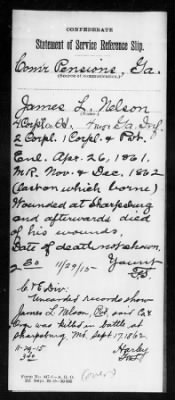 CONFEDERATE
Statement of Service Reference Slip.
Comr Pensions, Ga.
(Source of communication.)
James L. Nelson
(Name.)
4 Ga. Inf.
2 Corpl. 1 Corpl. & Pvt.
Enl. Apr. 26, 1861.
M.R. Nov. & Dec. 1862
(last on which borne)
Wounded at Sharpsburg
and afterwards died
of his wounds.
Date of death not shown.
11/29/15
C & E Div:
Uncarded records show
James L. Nelson, Pvt, said Co &
Org was killed in battle at
Sharpsburg, Md. Sept. 17, 1862.
(over)